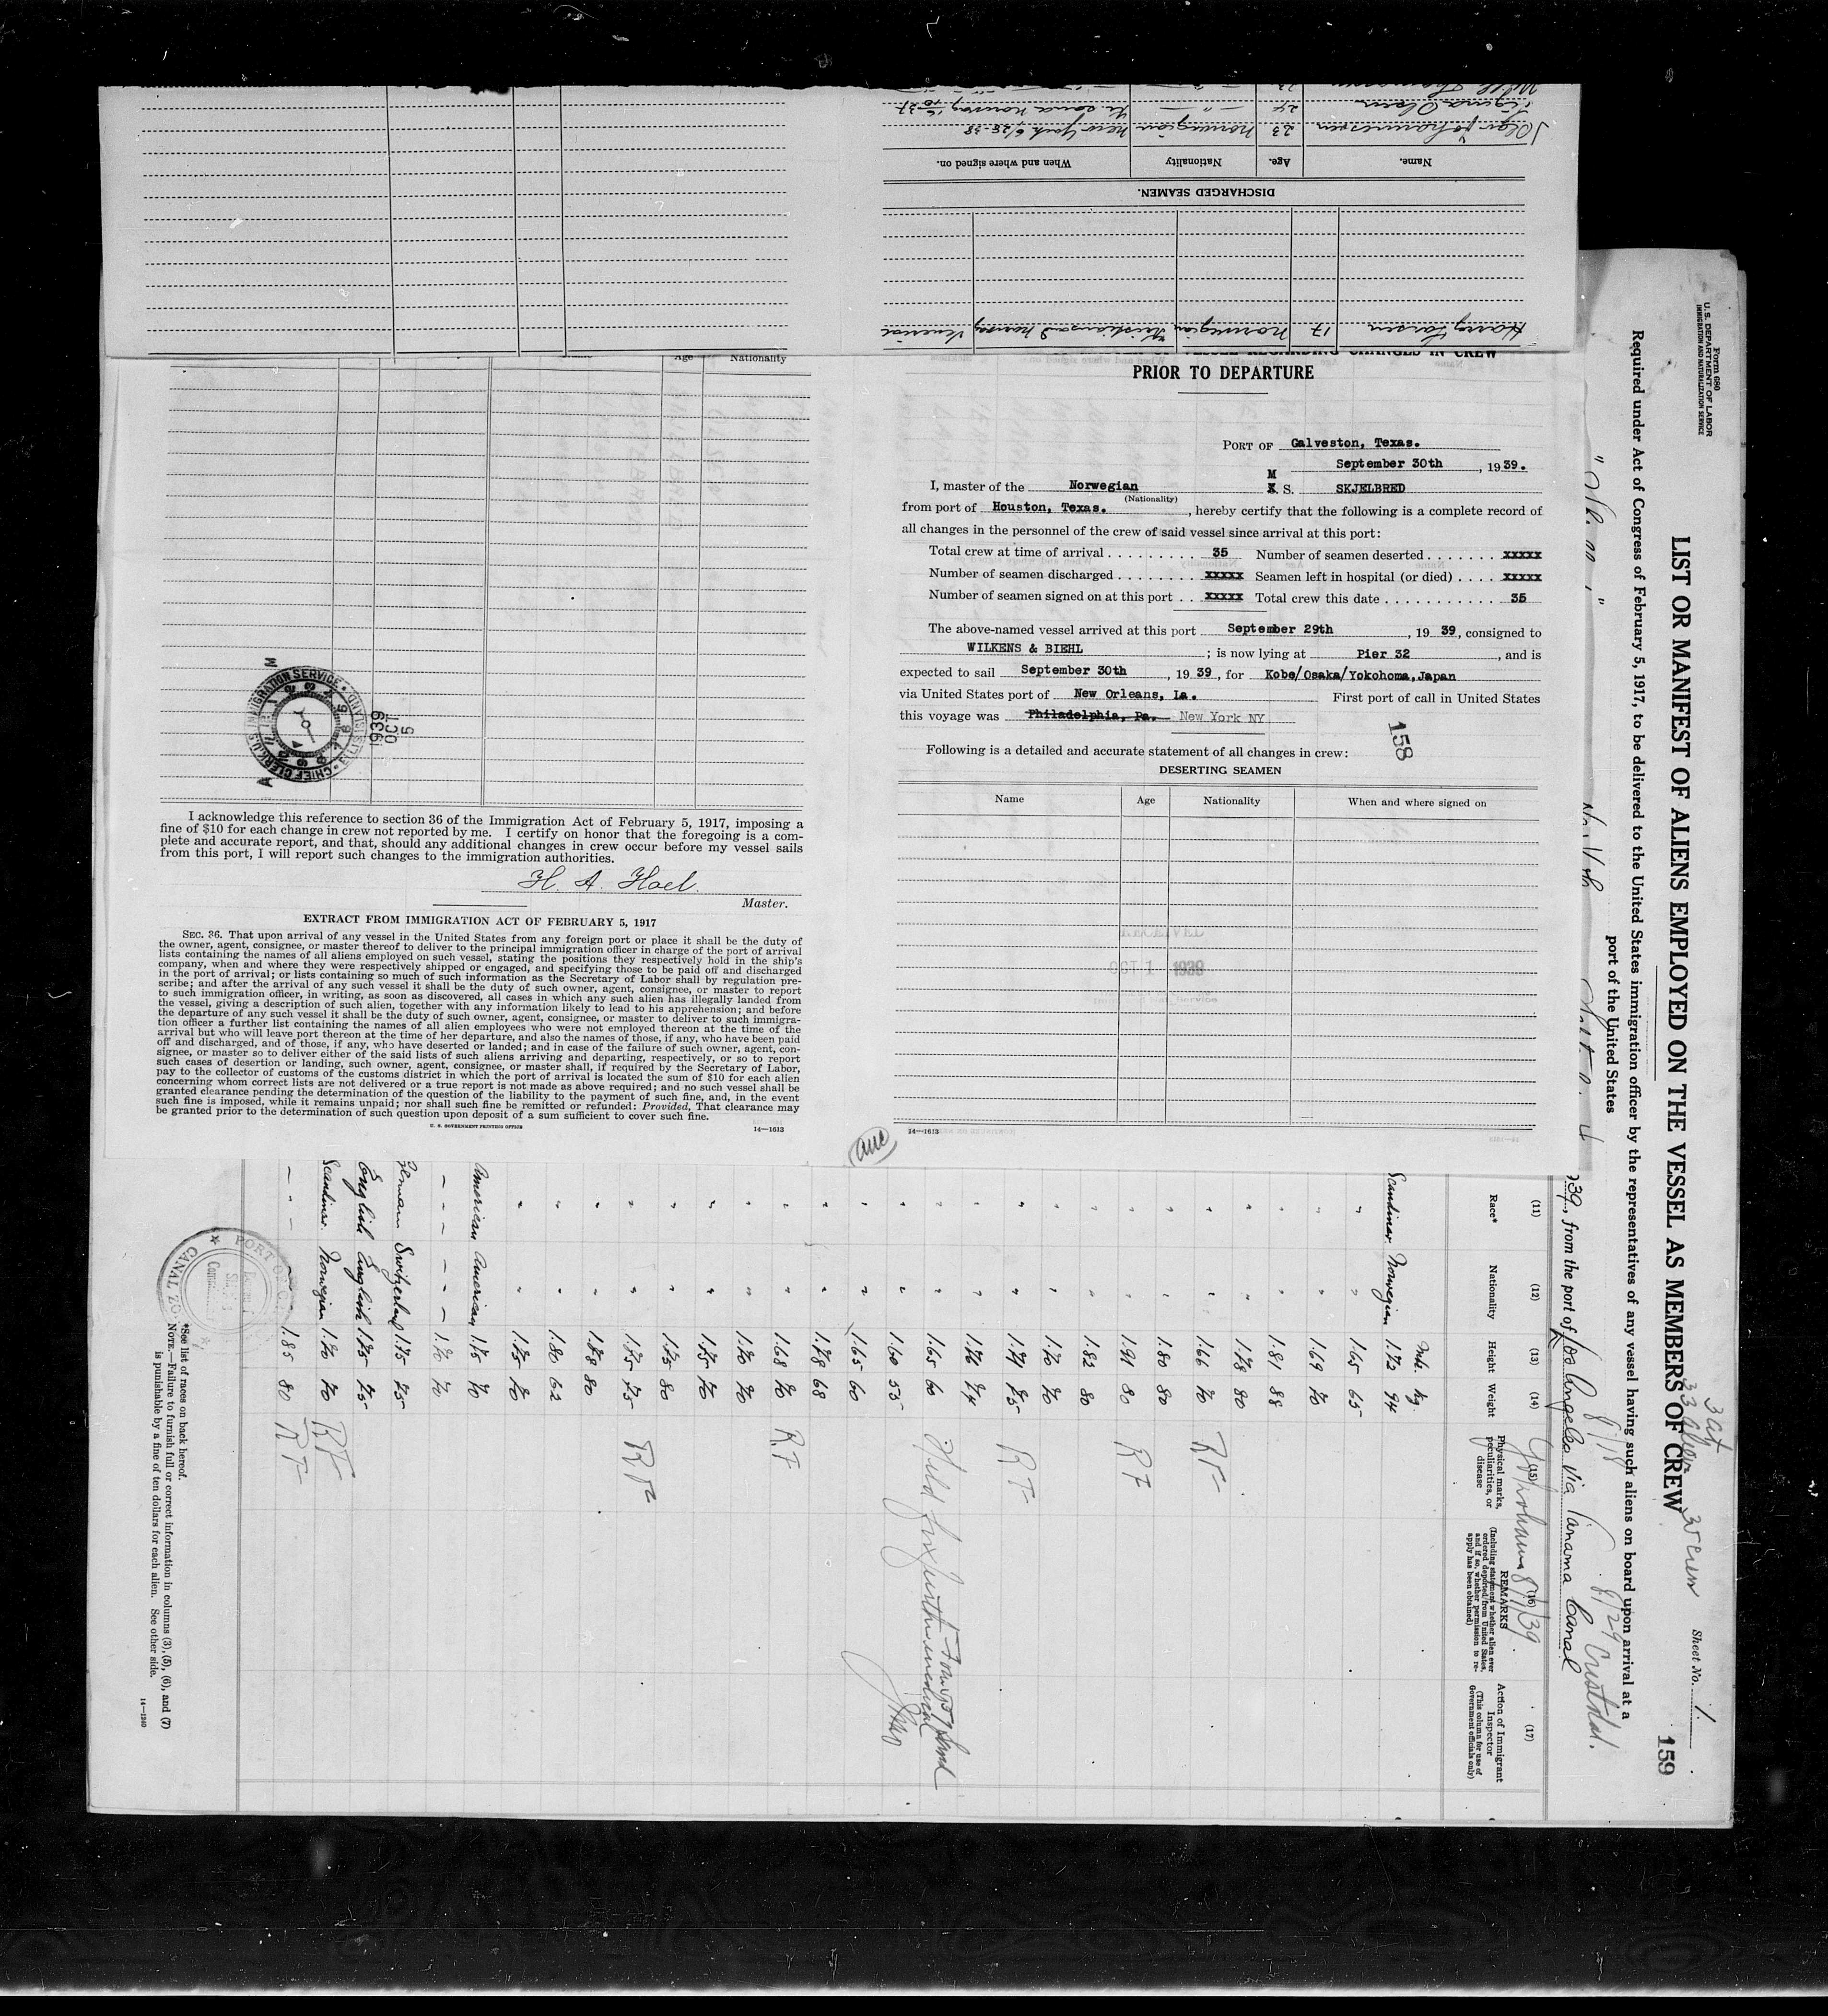 Harry Larsen 17 Norwegian Kristiansand Norway
DISCHARGED SEAMEN.
Name. Age. Nationality When and where signed on.
Olav Johannessen 23 Norwegian New York 6/28-38
24
Age Nationality
OF VESSEL REGARDING CHANGES IN CREW
PRIOR TO DEPARTURE
PORT OF Galveston, Texas.
September 30th, 1939.
I, master of the Norwegian M X S. SKJELBRED
(Nationality)
from port of Houston, Texas., hereby certify that the following is a complete record of
all changes in the personnel of the crew of said vessel since arrival at this port:
Total crew at time of arrival .......... 35 Number of seamen deserted ....... xxxxx
Number of seamen discharged ........ xxxxx Seamen left in hospital (or died) .... xxxxx
Number of seamen signed on at this port .. xxxxx Total crew this date ........... 35
The above-named vessel arrived at this port September 29th, 19 39, consigned to
WILKENS & BIEHL; is now lying at Pier 32, and is
expected to sail September 30th, 19 39, for Kobe/Osaka/Yokohoma,Japan
via United States port of New Orleans, La. First port of call in United States
this voyage was Philadelphia, Pa. New York NY
158
Following is a detailed and accurate statement of all changes in crew:
DESERTING SEAMEN
Name Age Nationality When and where signed on
OCT 1 1939
14—1613
CHIEF CLERK U.S. IMMIGRATION SERVICE
1939
OCT
5
I acknowledge this reference to section 36 of the Immigration Act of February 5, 1917, imposing a
fine of $10 for each change in crew not reported by me. I certify on honor that the foregoing is a com-
plete and accurate report, and that, should any additional changes in crew occur before my vessel sails
from this port, I will report such changes to the immigration authorities.
H. A. Hoel.
Master.
EXTRACT FROM IMMIGRATION ACT OF FEBRUARY 5, 1917
SEC. 36. That upon arrival of any vessel in the United States from any foreign port or place it shall be the duty of
the owner, agent, consignee, or master thereof to deliver to the principal immigration officer in charge of the port of arrival
lists containing the names of all aliens employed on such vessel, stating the positions they respectively hold in the ship's
company, when and where they were respectively shipped or engaged, and specifying those to be paid off and discharged
in the port of arrival; or lists containing so much of such information as the Secretary of Labor shall by regulation pre-
scribe; and after the arrival of any such vessel it shall be the duty of such owner, agent, consignee, or master to report
to such immigration officer, in writing, as soon as discovered, all cases in which any such alien has illegally landed from
the vessel, giving a description of such alien, together with any information likely to lead to his apprehension; and before
the departure of any such vessel it shall be the duty of such owner, agent, consignee, or master to deliver to such immigra-
tion officer a further list containing the names of all alien employees who were not employed thereon at the time of the
arrival but who will leave port thereon at the time of her departure, and also the names of those, if any, who have been paid
off and discharged, and of those, if any, who have deserted or landed; and in case of the failure of such owner, agent, con-
signee, or master so to deliver either of the said lists of such aliens arriving and departing, respectively, or so to report
such cases of desertion or landing, such owner, agent, consignee, or master shall, if required by the Secretary of Labor,
pay to the collector of customs of the customs district in which the port of arrival is located the sum of $10 for each alien
concerning whom correct lists are not delivered or a true report is not made as above required; and no such vessel shall be
granted clearance pending the determination of the question of the liability to the payment of such fine, and, in the event
such fine is imposed, while it remains unpaid; nor shall such fine be remitted or refunded: Provided, That clearance may
be granted prior to the determination of such question upon deposit of a sum sufficient to cover such fine.
U. S. GOVERNMENT PRINTING OFFICE 14—1613
Form 680
U. S. DEPARTMENT OF LABOR
IMMIGRATION AND NATURALIZATION SERVICE
35 crew
Sheet No. 1.
159
LIST OR MANIFEST OF ALIENS EMPLOYED ON THE VESSEL AS MEMBERS OF CREW
Required under Act of Congress of February 5, 1917, to be delivered to the United States immigration officer by the representatives of any vessel having such aliens on board upon arrival at a
port of the United States
8/18 8/29 Cristobal.
39, from the port of Los Angeles via Panama Canal
Yokohama 8/1/39
(11) (12) (13) (14) (15) (16) (17)
Race* Nationality Height Weight Physical marks, peculiarities, or disease
REMARKS
(Including statement whether alien ever
ordered deported from United States,
and if so, whether permission to re-
apply has been obtained)
Action of Immigrant
Inspector
(This column for use of
Government officials only)
kg.
Scandinav. Norwegian 1.72 94
" " 1.65 65
" " 1.69 70
" " 1.81 88
" " 1.78 80
" " 1.66 70 RF
" " 1.80 80
" " 1.91 80 RF
" " 1.82 80
" " 1.70 70
" " 1.71 75 RF
" " 1.76 74
" " 1.65 60
" " 1.60 55
" " 1.65 60
" " 1.78 68
" " 1.68 70 RF
" " 1.70 70
" " 1.75 70
" " 1.75 80
" " 1.75 75 RF
" " 1.78 80
" " 1.80 62
" " 1.75 70
American American 1.75 70
- - - - - - 1.70 70
German Switzerland 1.75 75
English English 1.75 75
Scandinav. Norwegian 1.70 70 RF
- - - - 1.85 80 RF
*See list of races on back hereof.
NOTE.—Failure to furnish full or correct information in columns (3), (5), (6), and (7)
is punishable by a fine of ten dollars for each alien. See other side.
14—1240